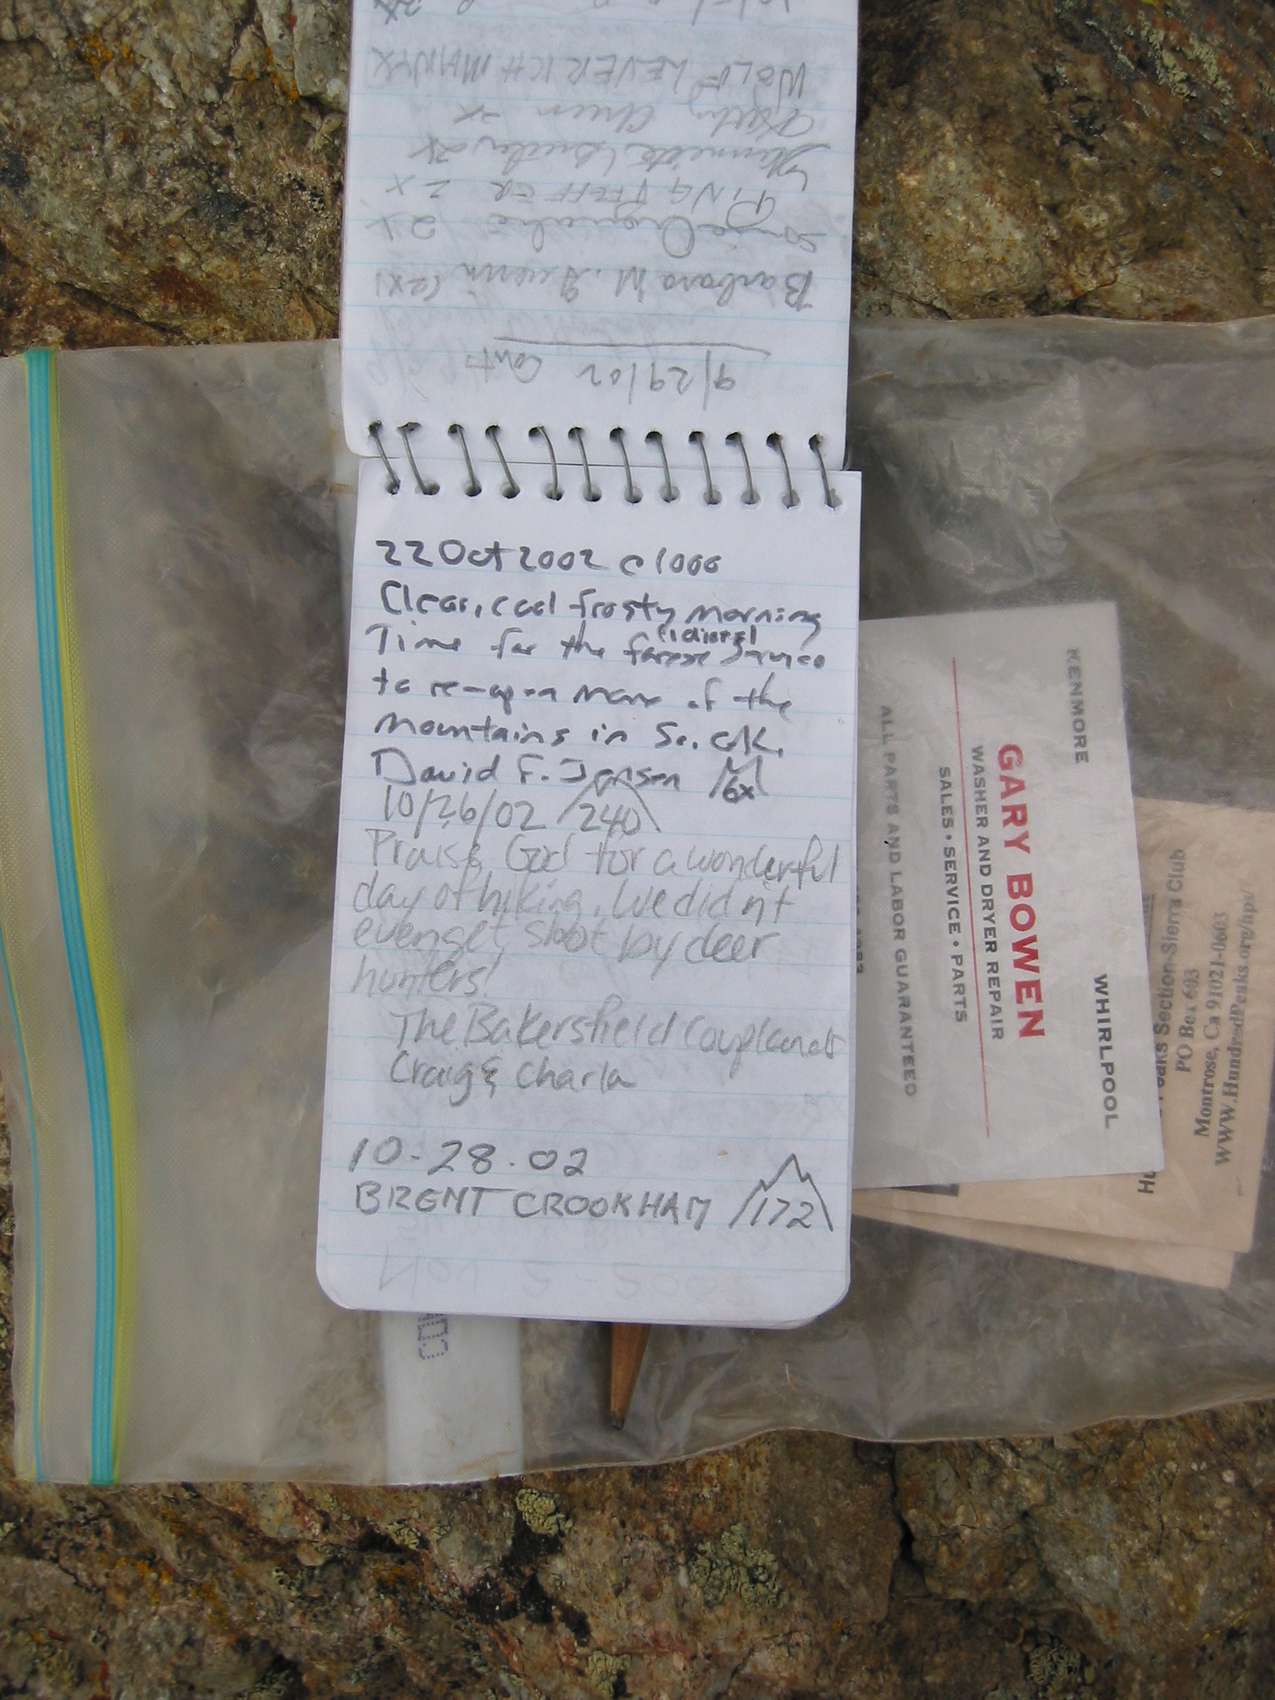 9/29/02 Cont
Barbara M. Guerin (2x)
Sonia 2x
PING PFEFFER 2x
2x
Kathy Cheever 2x
WOLF LEVERICH MANYX
2x
22 Oct 2002 @ 1000
Clear, cool frosty morning
(idiots)
Time for the forest service
to re-open more of the
mountains in So. CA.
David F. Jensen 6x
10/26/02 240
Praise God for a wonderful
day of hiking. We didn't
even get shot by deer
hunters!
The Bakersfield
Craig & Charla
10-28-02
BRENT CROOKHAM 172
KENMORE WHIRLPOOL
GARY BOWEN
WASHER AND DRYER REPAIR
SALES • SERVICE • PARTS
ALL PARTS AND LABOR GUARANTEED
Section-Sierra Club
PO Box 693
Montrose, Ca 91021-0693
WWW.HundredPeaks.org/hps/